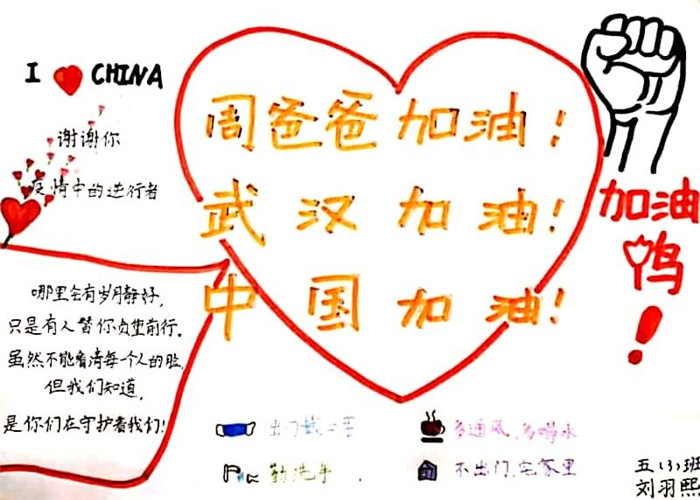 I CHINA
谢谢你
疫情中的逆行者
周爸爸加油!
武汉加油!
中国加油!
加油
鸭
!
哪里会有岁月静好,
只是有人替你负重前行。
虽然不能看清每个人的脸,
但我们知道,
是你们在守护着我们!
出门戴口罩
多通风,多喝水
勤洗手.
不出门,宅家里
五(3)班
刘羽熙